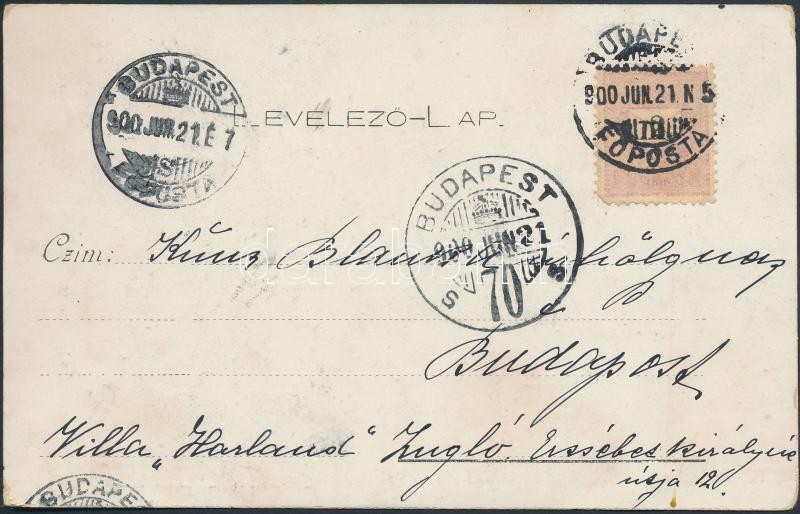 BUDAPEST
900 JUN. 21. É 7
FŐPOSTA
BUDAPEST
900 JUN. 21. N 5
FŐPOSTA
LEVELEZŐ-LAP.
BUDAPEST
900 JUN 21
S 70
Czim: Kúnz Blanka úrhölgynek
Budapest
Villa „Harland" Zugló. Erzsébet királyné
útja 12.
BUDAPE
darabanth.com